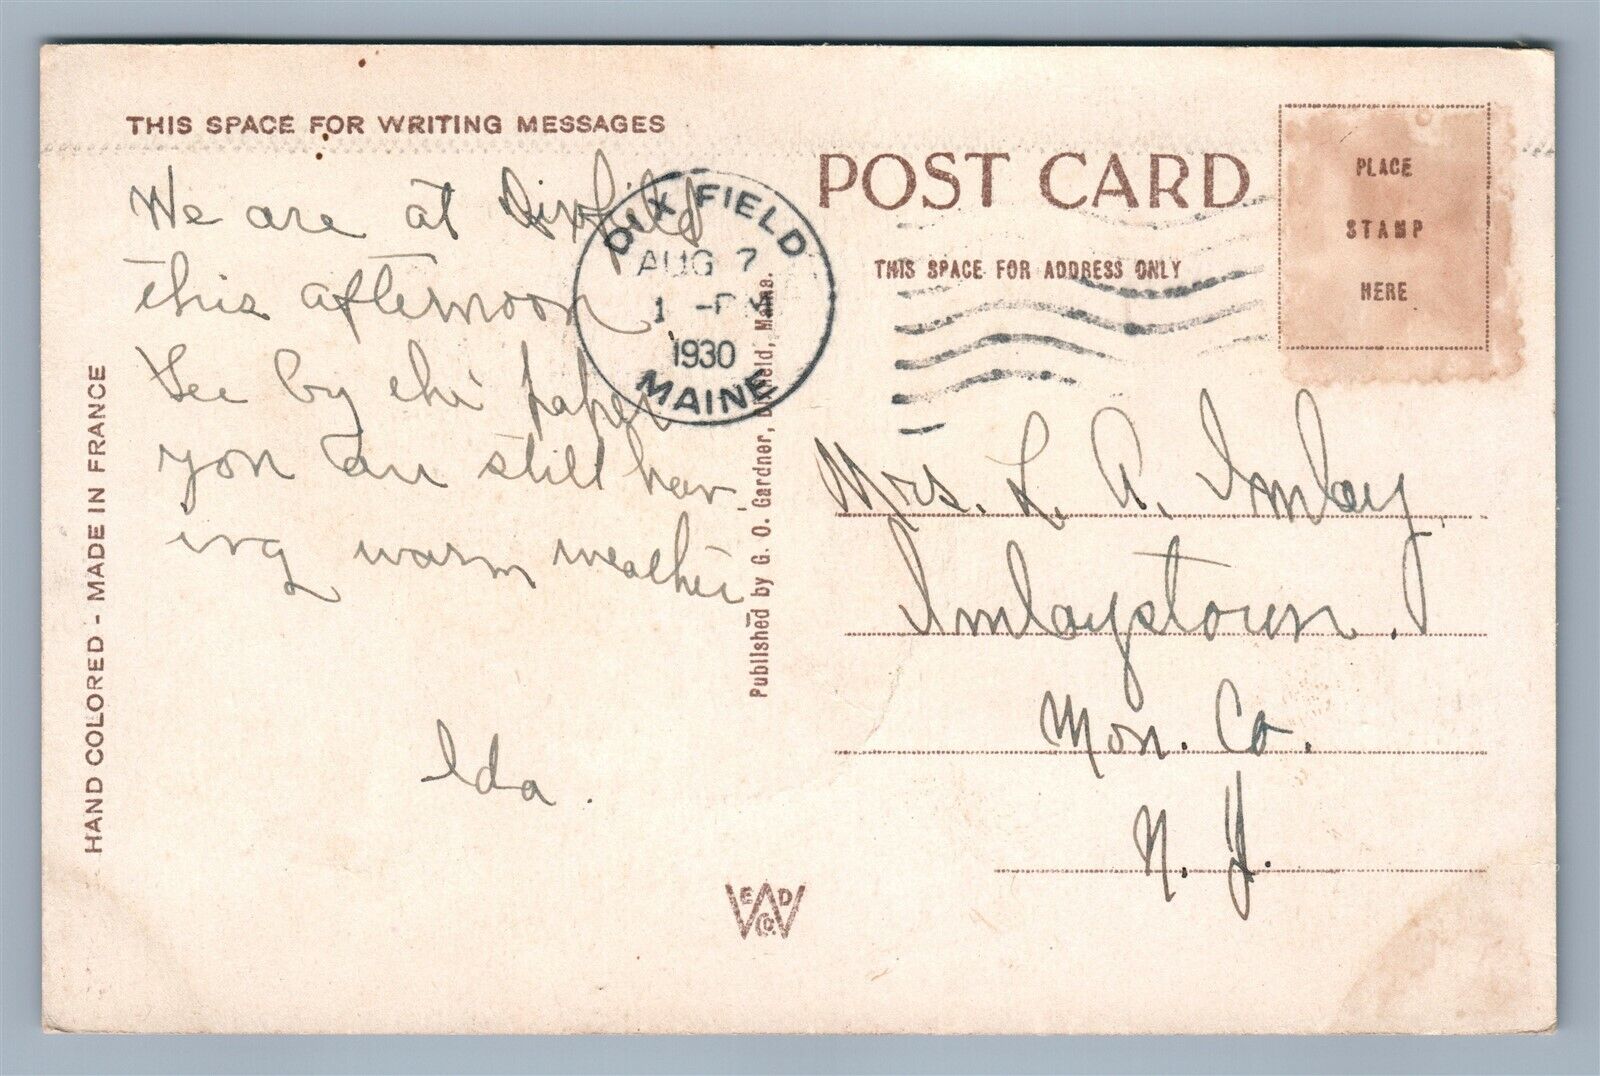 THIS SPACE FOR WRITING MESSAGES
We are at Dixfield
this afternoon
See by the paper
you are still hav-
ing warm weather
Ida.
HAND COLORED - MADE IN FRANCE
DIXFIELD
AUG 7
1 -PM
1930
MAINE
Published by G. O. Gardner, Dixfield, Maine.
POST CARD
THIS SPACE FOR ADDRESS ONLY
PLACE
STAMP
HERE
Mrs. L. A. Imlay,
Imlaystown.
Mon. Co.
N. J.